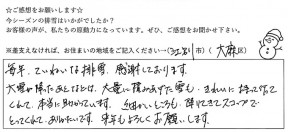 ☆ご感想をお願いします☆
今シーズンの排雪はいかがでしたか？
お客様の声が、私たちの原動力になっています。ぜひ、ご感想をお聞かせ下さい。
※差支えなければ、お住まいの地域をご記入ください→(江別市)(大麻区)
毎年、ていねいな排雪、感謝しております。
大雪が降ったあとなどは、大量に隣のあずた雪も、きれいに持って行って
くれて、本当に助かっています。細かいところも、降りてきてスコップで
とってくれて、ありがたいです。来年もよろしくお願いします。